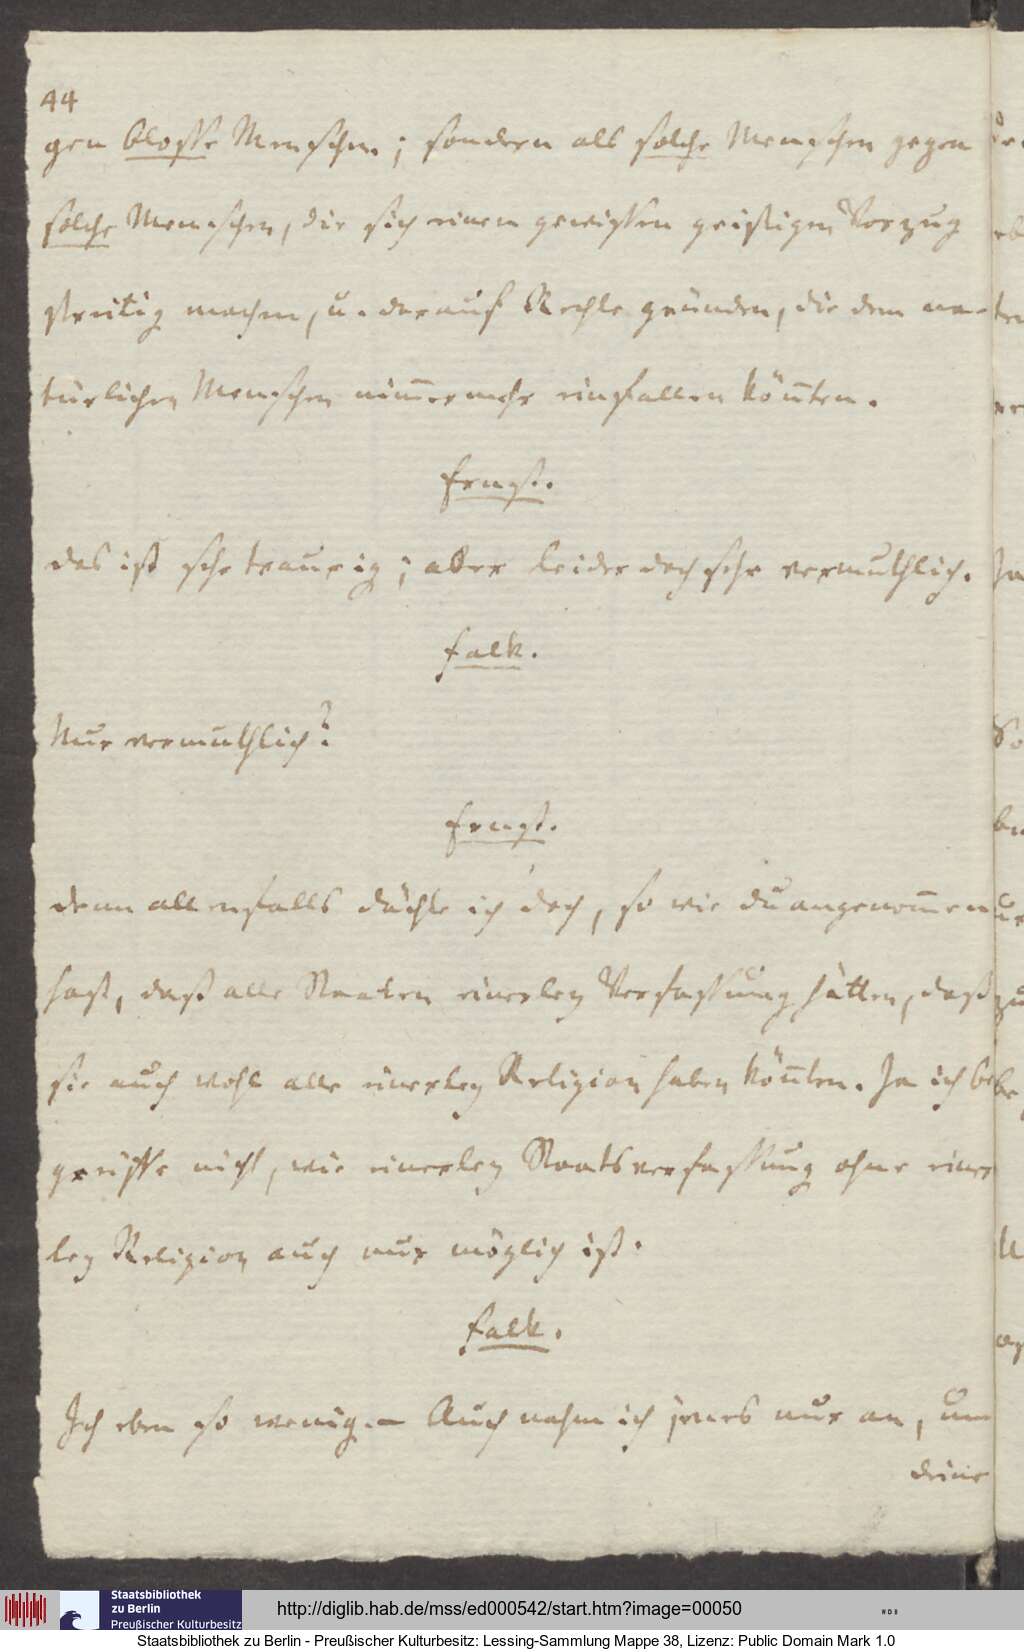 44
gen blosse Menschen; sondern als solche Menschen gegen
solche Menschen, die sich einen gewissen geistigen Vorzug
streitig machen, u. darauf Rechte gründen, die dem na-
türlichen Menschen nim̄ermehr einfallen kön̄ten.
Ernst.
das ist sehr traurig; aber leider doch sehr vermuthlich.
Falk.
Nur vermuthlich?
Ernst.
denn allenfalls dächte ich doch, so wie du angenom̄en
hast, daß alle Staaten einerley Verfassung hätten, daß
sie auch wohl alle einerley Religion haben kön̄ten. Ja ich be
greiffe nicht, wie einerley Staatsverfassung ohne einer
ley Religion auch nur möglich ist.
Falk.
Ich eben so wenig. — Auch nahm ich jenes nur an, um
deine
Staatsbibliothek
zu Berlin
Preußischer Kulturbesitz
http://diglib.hab.de/mss/ed000542/start.htm?image=00050
Staatsbibliothek zu Berlin - Preußischer Kulturbesitz: Lessing-Sammlung Mappe 38, Lizenz: Public Domain Mark 1.0